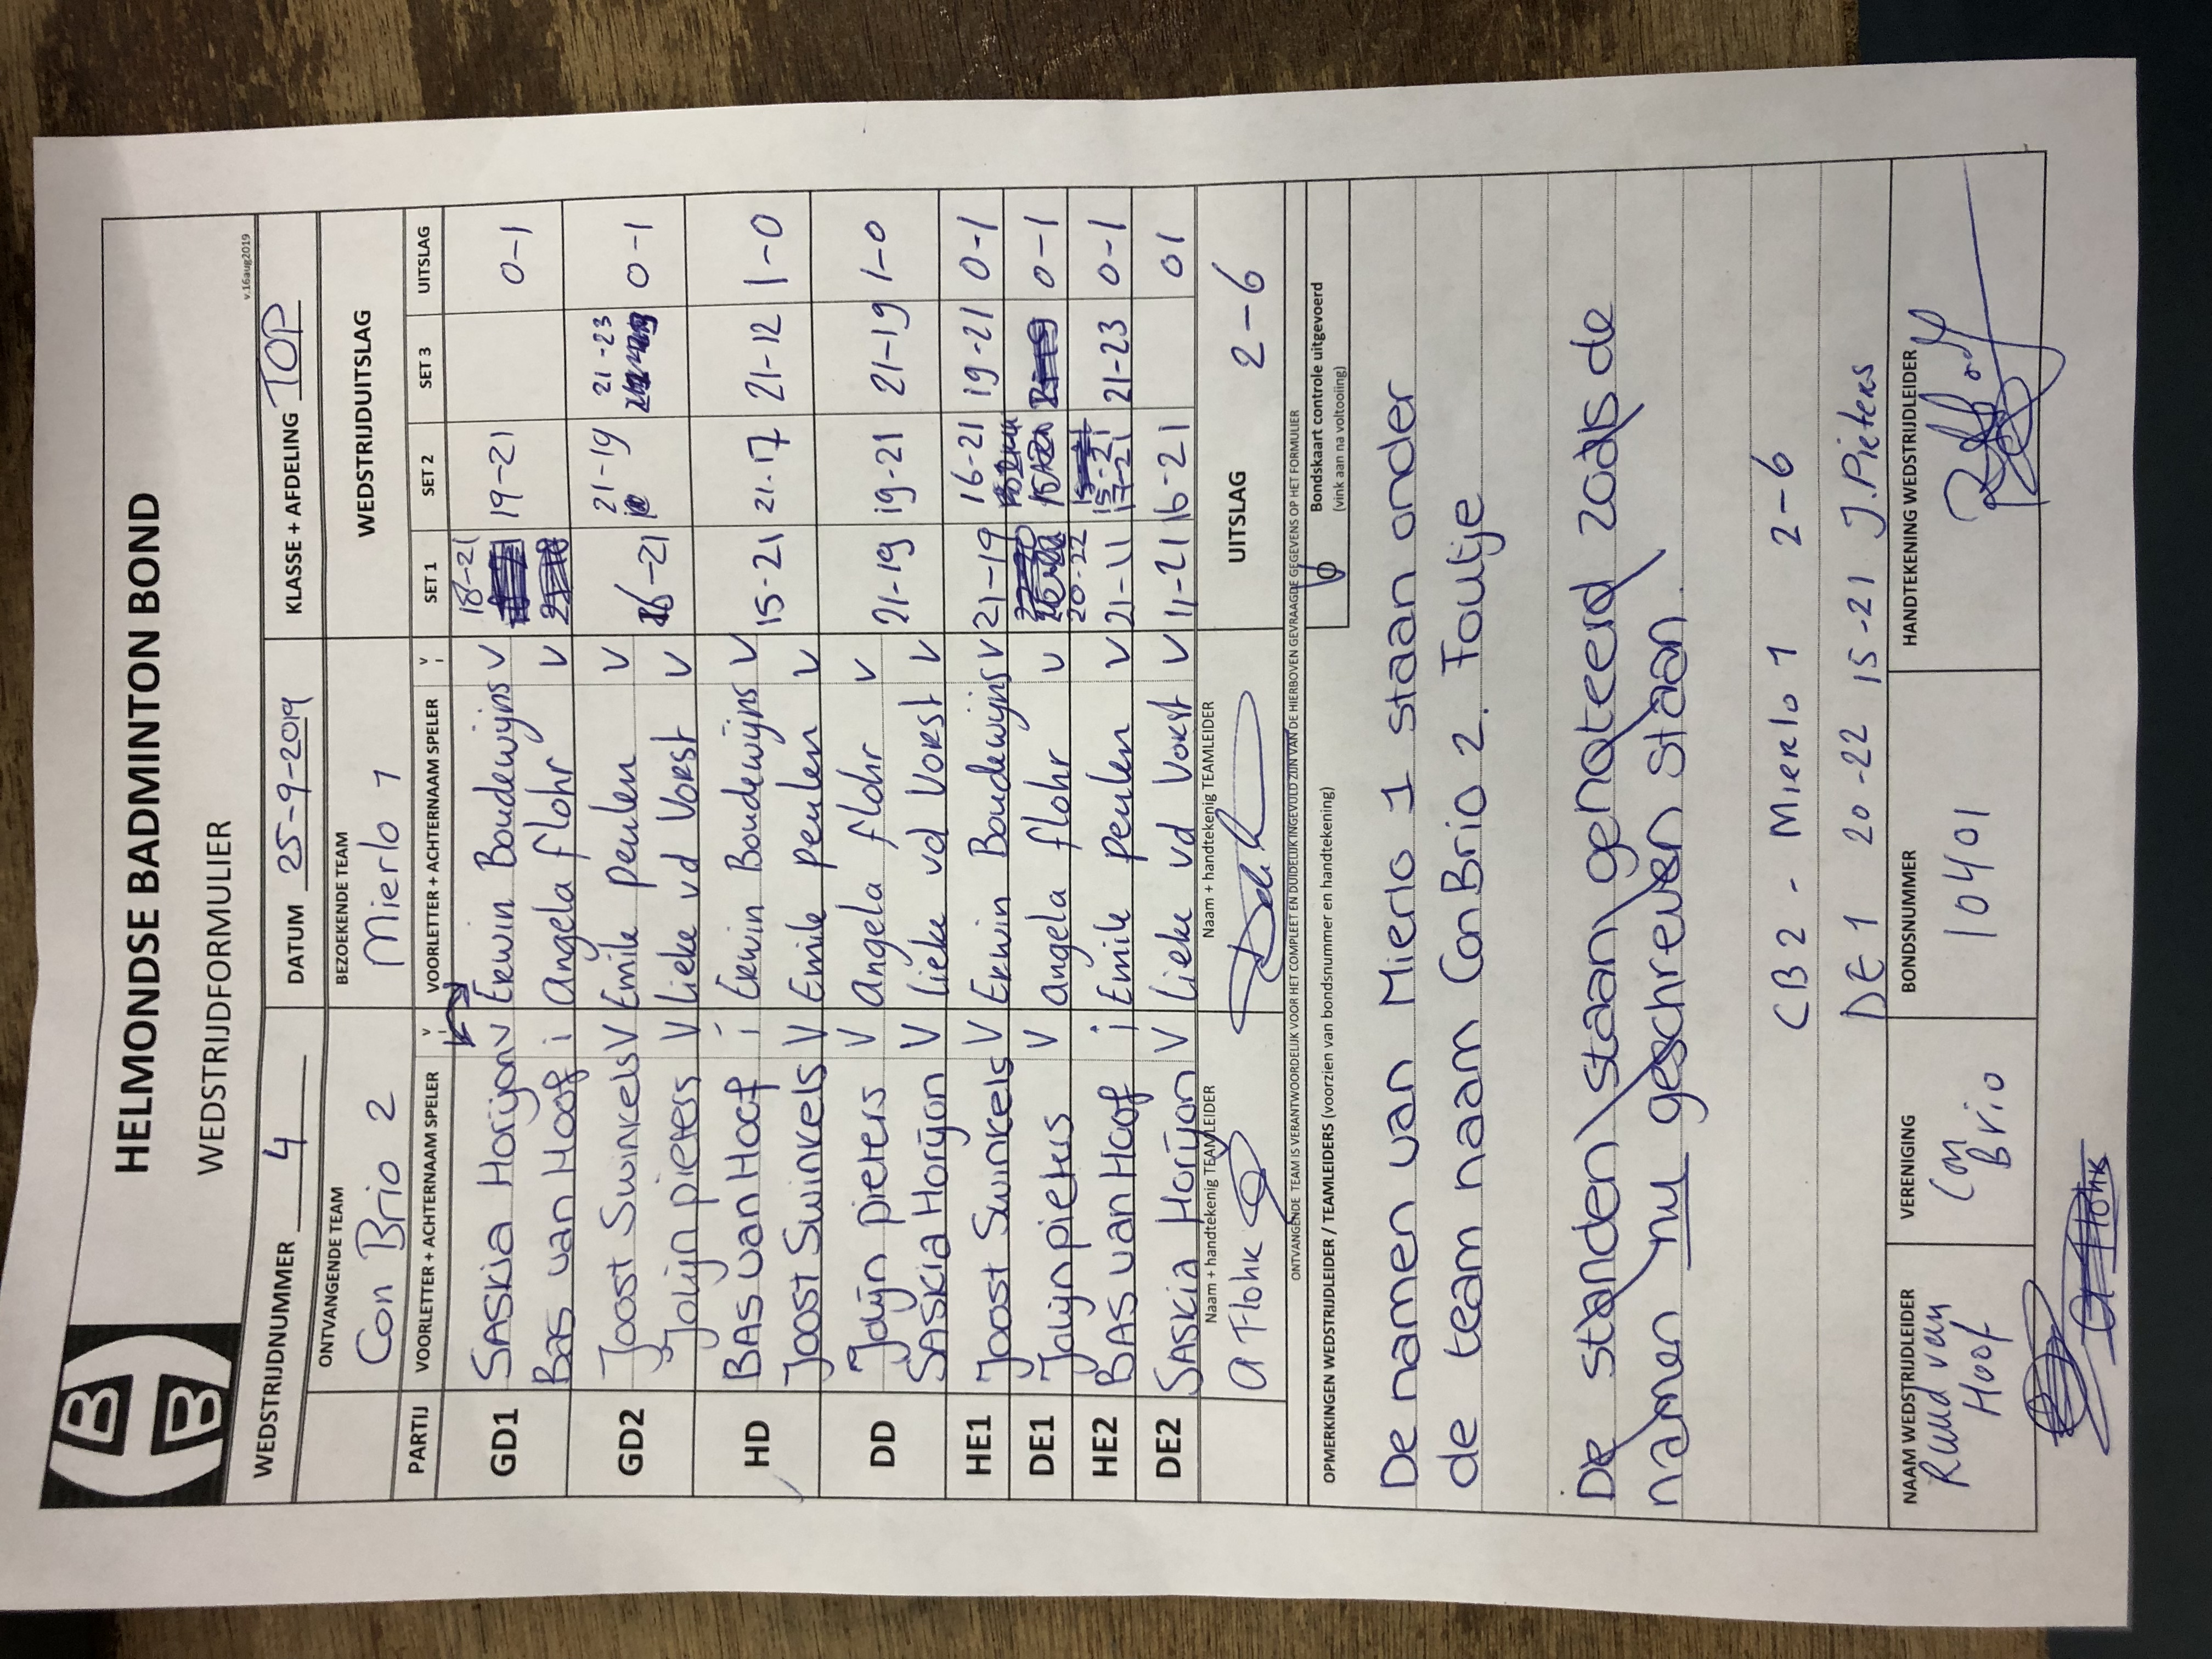 HELMONDSE BADMINTON BOND
WEDSTRIJDFORMULIER
v.16aug2019
WEDSTRIJDNUMMER 4 DATUM 25-9-2019 KLASSE + AFDELING TOP
ONTVANGENDE TEAM BEZOEKENDE TEAM WEDSTRIJDUITSLAG
Con Brio 2 Mierlo 1
PARTIJ VOORLETTER + ACHTERNAAM SPELER V i VOORLETTER + ACHTERNAAM SPELER V i SET 1 SET 2 SET 3 UITSLAG
GD1 SASKIA Horijon V Erwin Boudewijns V 18-21 19-21 0-1
Bas van Hoof i Angela flohr V
GD2 Joost Swinkels V Emile penlen V 16-21 21-19 21-23 0-1
Jolijn pieters V Lieke vd Vorst V
HD BAS van Hoof i Erwin Boudewijns V 15-21 21-17 21-12 1-0
Joost Swinkels V Emile penlen V
DD Jolijn pieters V Angela flohr V 21-19 19-21 21-19 1-0
SASKIA Horijon V Lieke vd Vorst V
HE1 Joost Swinkels V Erwin Boudewijns V 21-19 16-21 19-21 0-1
DE1 Jolijn pieters V angela flohr V 0-1
20-22
HE2 BAS van Hoof i Emile penlen V 21-11 17-21 21-23 0-1
DE2 SASKIA Horijon V Lieke vd Vorst V 11-21 16-21 0 1
Naam + handtekenig TEAMLEIDER Naam + handtekenig TEAMLEIDER UITSLAG 2-6
a Flohr
ONTVANGENDE TEAM IS VERANTWOORDELIJK VOOR HET COMPLEET EN DUIDELIJK INGEVULD ZIJN VAN DE HIERBOVEN GEVRAAGDE GEGEVENS OP HET FORMULIER
OPMERKINGEN WEDSTRIJDLEIDER / TEAMLEIDERS (voorzien van bondsnummer en handtekening) Bondskaart controle uitgevoerd
(vink aan na voltooiing)
De namen van Mierlo 1 staan onder
de team naam Con Brio 2. Foutje
De standen staan genoteerd zoals de
namen nu geschreven staan.
CB2 - Mierlo 1 2-6
DE1 20-22 15-21 J.Pieters
NAAM WEDSTRIJDLEIDER VERENIGING BONDSNUMMER HANDTEKENING WEDSTRIJDLEIDER
Ruud van Con 10401
Hoof Brio